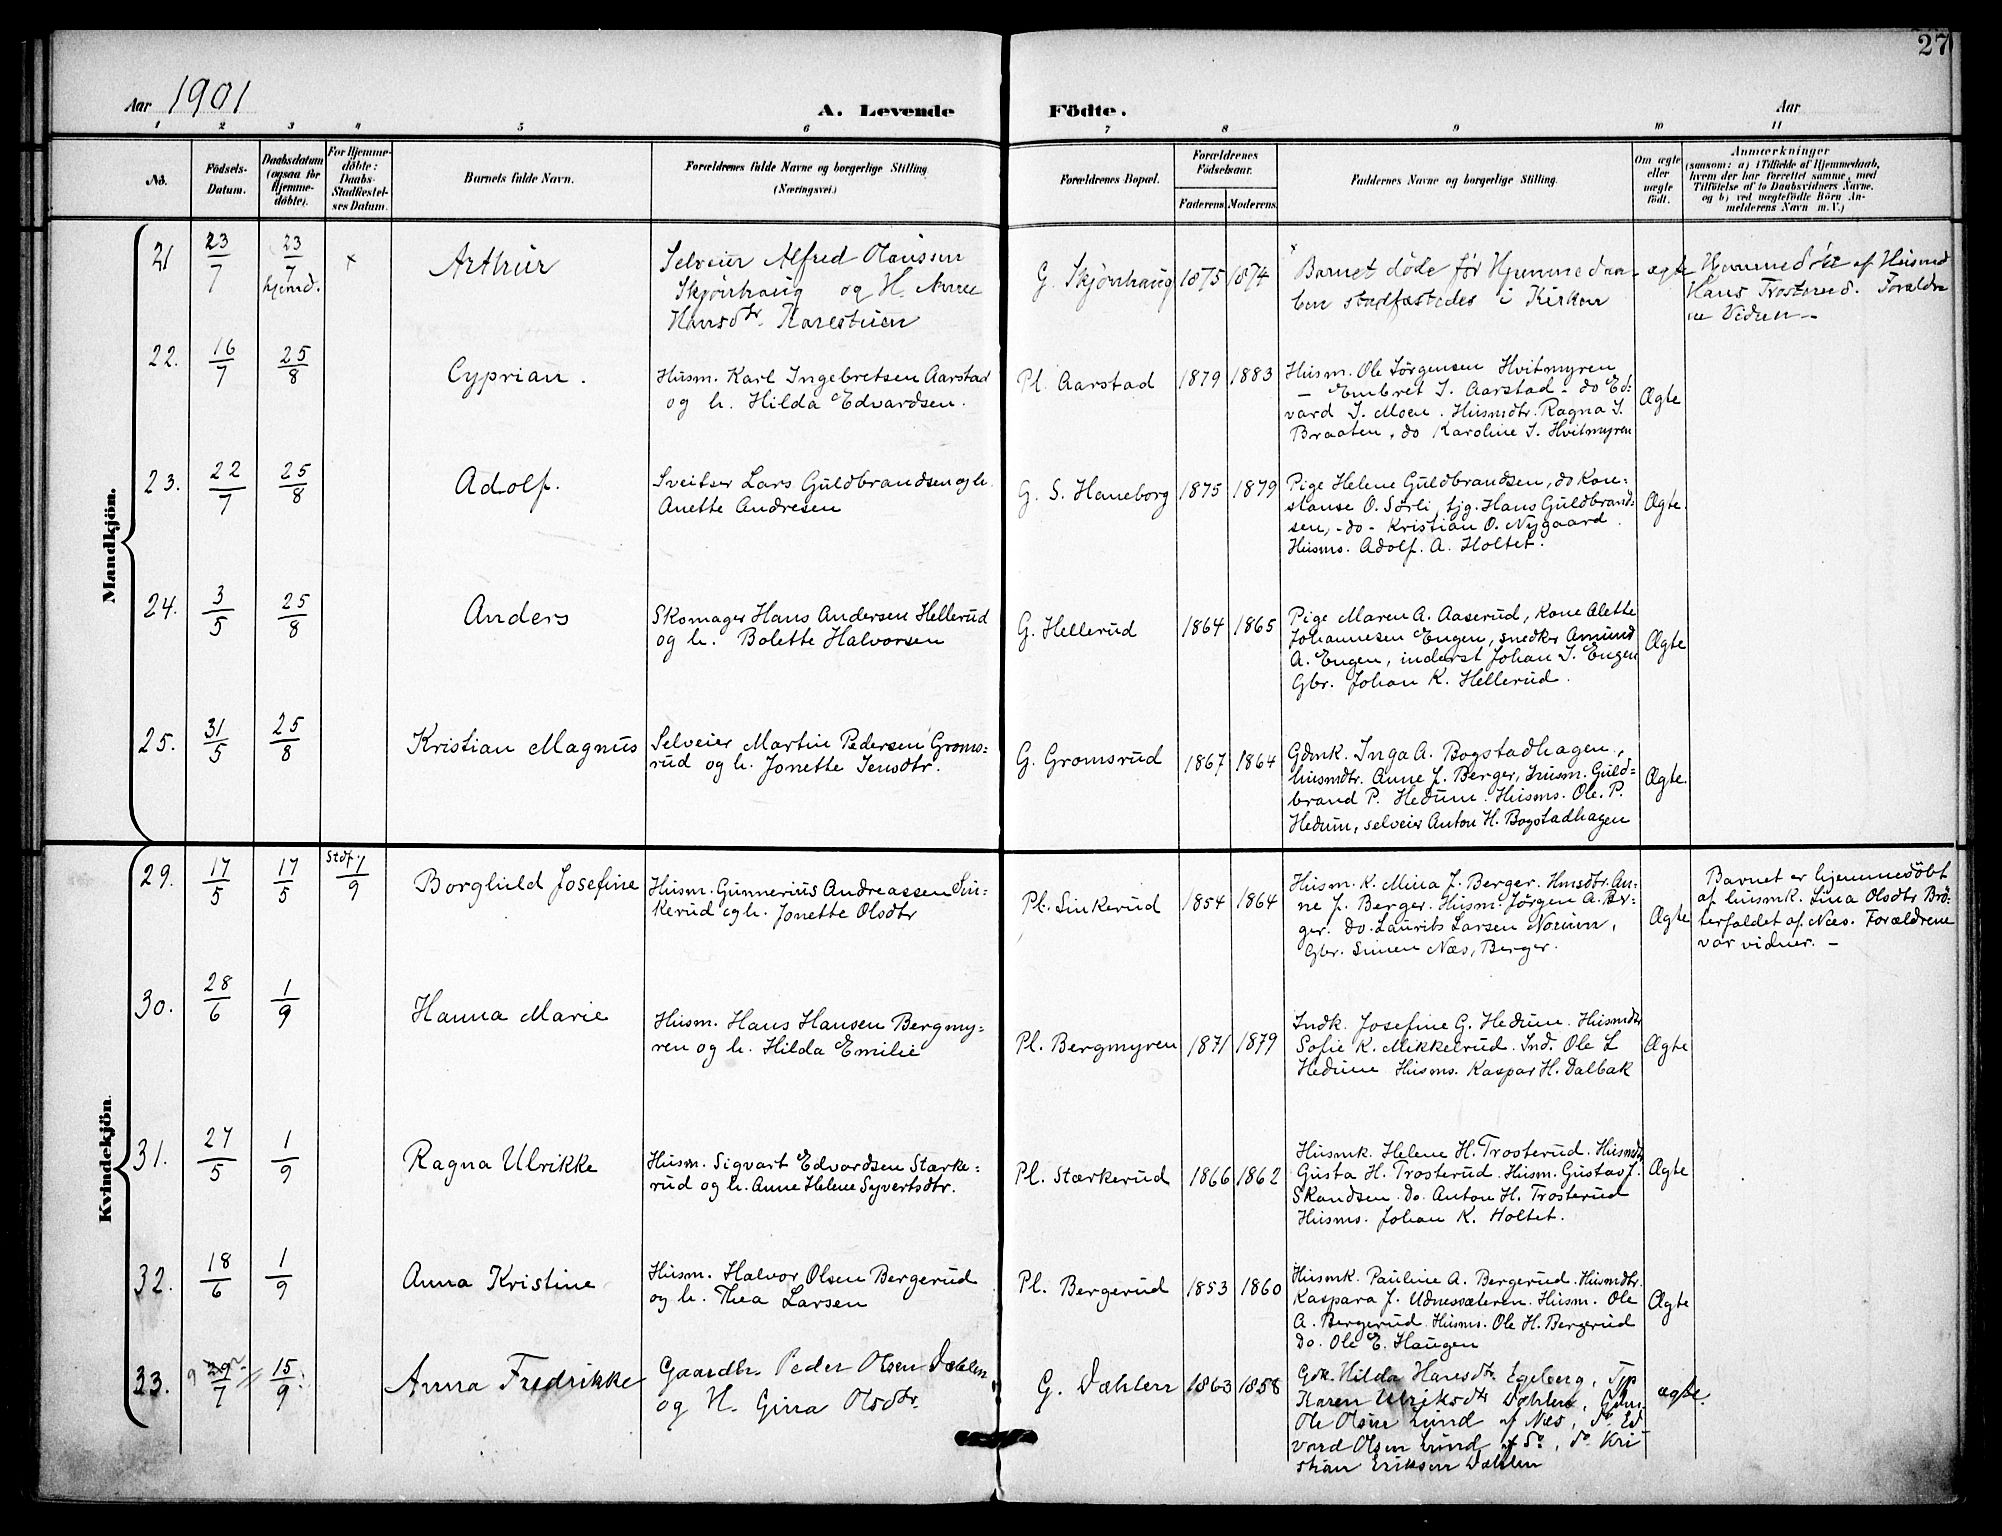 27
Aar 1901
A. Levende Födte.
Aar
1 2 3 4 5 6 7 8 9 10 11
No. Födsels-Datum. Daabsdatum (ogsaa for Hjemme-döbte). For Hjemme-döbte: Daabs-Stadfæstel-ses Datum. Barnets fulde Navn. Forældrenes fulde Navne og borgerlige Stilling (Næringsvei.) Forældrenes Bopæl. Forældrenes Födselsaar. Faderens Moderens Faddernes Navne og borgerlige Stilling. Om ægte eller uægte födt. Anmærkninger (saasom: a) i Tilfælde af Hjemmedaab, hvem der har forrettet samme, med Tilföielse af to Daabsvidners Navne, og b) ved uægtefödte Börn An-melderens Navn m. V.)
Mandkjön.
21 23/7 23/7 hjemd. x Arthur
Selveier Alfred Olaussen
Skjönhaug og H.
Hansdtr. Karestuen
G. Skjönhaug 1875 1874
x Barnet döde för Hjemmedaa-
ben stadfæstedes i Kirken
ægte
Hjemmedöbt af Husmd
Hans Trosterud. Foreldre
ne Vidner.-
22. 16/7 25/8 Cyprian.
Husm. Karl Ingebretsen Aarstad
og h. Hilda Edvardsen.
Pl. Aarstad 1879 1883
Husm. Ole Jörgensen Hvitmyren
- Embret J. Aarstad - do Ed-
vard J. Moen. Husmdtr. Ragna J.
Braaten, do Karoline J. Hvitmyren
Ægte
23. 22/7 25/8 Adolf.
Sveitser Lars Guldbrandsen og h.
Anette Andresen
G. S. Haneborg 1875 1879
Pige Helene Guldbrandsen, do Kon-
stanse O. Sörli, tjg. Hans Guldbrand-
sen, -do- Kristian O. Nygaard.
Husms. Adolf. A. Holtet.
Ægte.
24. 3/5 25/8 Anders
Skomager Hans Andersen Hellerud
og h. Bolette Halvorsen
G. Hellerud 1864 1865
Pige Maren A. Aaserud, Kone Alette
Johannesen Engen, snedker Amund
A. Engen, inderst Johan J. Engen
Gbr. Johan K. Hellerud.
Ægte
25. 31/5 25/8 Kristian Magnus
Selveier Martin Pedersen Groms-
rud og h. Jonette Jensdtr.
G. Gromsrud 1867 1864
Gdmk. Inga A. Bogstadhagen,
husmdtr. Anne J. Berger, husm. Guld-
brand P. Hedum. Husms. Ole. P.
Hedum, selveier Anton H. Bogstadhagen
Ægte.
Kvindekjön.
29. 17/5 17/5 Stdf. 1/9 Borghild Josefine
Husm. Gunnerius Andreassen Lin-
kerud og h. Jonette Olsdtr
Pl. Linkerud 1854 1864
Husm. K. Mina J. Berger. Hmsdtr. An-
ne J. Berger. Husm. Jörgen A. Ber-
ger. do. Laurits Larsen
Gbr. Simen Næs, Berger.
Ægte
Barnet er hjemmedöbt
af husmk. Lina Olsdtr Brö-
terfaldet af Næs. Forældrene
var vidner. -
30. 28/6 1/9 Hanna Marie
Husm. Hans Hansen Bergmy-
ren og h. Hilda Emilie
Pl. Bergmyren 1871 1879
Indk. Josefine G. Hedum. Husmdtr
Sofie K. Mikkelrud. Ind. Ole L
Hedum Husms. Kaspar H. Dalbak
Ægte
31. 27/5 1/9 Ragna Ulrikke
Husm. Sigvart Edvardsen Stærke-
rud og h. Anne Helene Syvertsdtr.
Pl. Stærkerud 1866 1862
Husmk. Helene H. Trosterud. Husmdtr
Gusta H. Trosterud. Husm. Gustav J.
Skandsen. do. Anton H. Trosterud
Husms. Johan K. Holtet.
Ægte
32. 18/6 1/9 Anna Kristine
Husm. Halvor Olsen Bergerud
og h. Thea Larsen
Pl. Bergerud 1853 1860
Husmk. Pauline A. Bergerud. Husmdtr.
Kaspara J. Udnessæteren. Husm. Ole
A. Bergerud. Husms. Ole H. Bergerud
Do. Ole E. Haugen
Ægte
33. 29/7 15/9 Anna Fredrikke
Gaardbr. Peder Olsen Dæhlen
og H. Gina Olsdtr.
G. Dæhlen 1863 1858
Gdk. Hilda Hansdtr. Egeberg,
Karen Ulriksdtr Dæhlen,
Ole Olsen Lund af Næs, do. Ed
vard Olsen Lund af do., do. Kri
stian Eriksen Dæhlen
ægte.